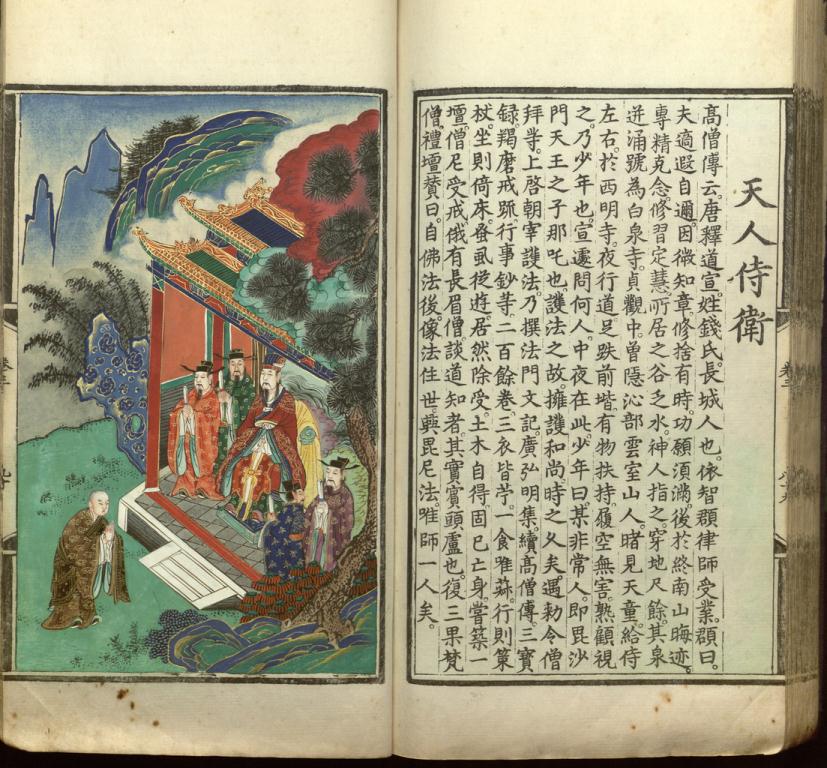 天人侍衛
高僧傳云。唐釋道宣。姓錢氏。長城人也。依智頵律師受業。頵曰。
夫適遐自邇。因微知章。修捨有時。功願須滿。後於終南山晦迹。
專精克念。修習定慧。所居之谷乏水。神人指之。穿地尺餘。其泉
迸涌。號為白泉寺。貞觀中。曾隱沁部雲室山。人睹見天童。給侍
左右。於西明寺。夜行道。足跌前堦。有物扶持。履空無害。熟顧視
之。乃少年也。宣遽問何人。中夜在此。少年曰。某非常人。即毘沙
門天王之子那吒也。護法之故。擁護和尚。時之久矣。遇勅令僧
拜等。上啓朝宰護法。乃撰法門文記。廣弘明集。續高僧傳。三寶
録。羯磨戒䟽。行事鈔等。二百餘卷。三衣皆苧。一食唯菽。行則策
杖。坐則倚床。蚤虱從遊。居然除受。土木自得。固已亡身。嘗築一
壇。僧尼受戒。俄有長眉僧。談道知者。其實賓頭盧也。復三果梵
僧。禮壇贊曰。自佛法後。像法住世。興毘尼法。唯師一人矣。